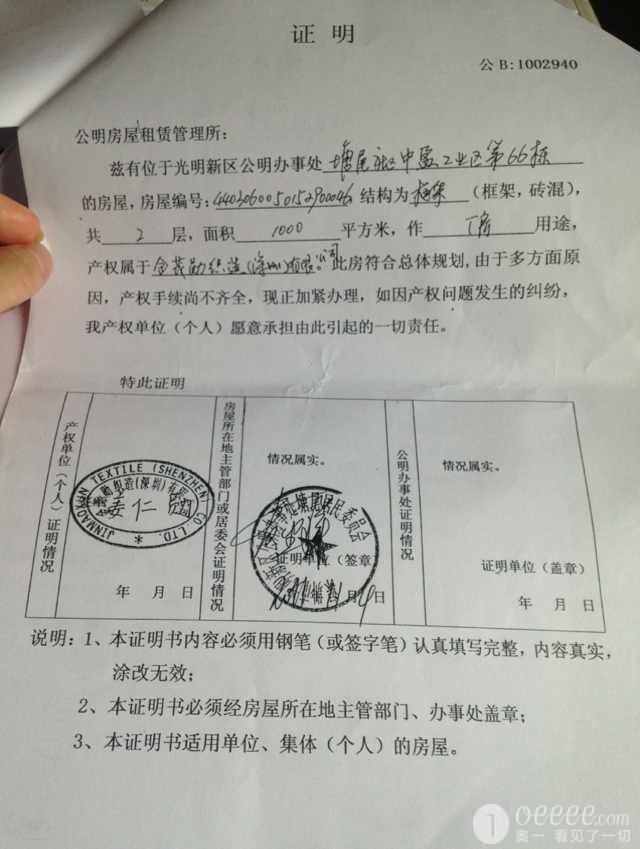 证 明
公 B:1002940
公明房屋租赁管理所：
兹有位于光明新区公明办事处 塘尾社区中 工业区第66栋
的房屋，房屋编号：4403060050152900046 结构为 框架 （框架，砖混），
共 2 层，面积 1000 平方米，作 厂房 用途，
产权属于 金茂勋织造(深圳)有限公司 此房符合总体规划，由于多方面原
因，产权手续尚不齐全，现正加紧办理，如因产权问题发生的纠纷，
我产权单位（个人）愿意承担由此引起的一切责任。
特此证明
产权单位（个人）证明情况
JINMAOXUN TEXTILE (SHENZHEN) CO., LTD.
织造(深圳)有限
姜仁
年 月 日
房屋所在地主管部门或居委会证明情况
情况属实。
塘尾居民委员会
证明单位（签章）
月 日
公明办事处证明情况
情况属实。
证明单位（盖章）
年 月 日
说明：1、本证明书内容必须用钢笔（或签字笔）认真填写完整，内容真实，
涂改无效；
2、本证明书必须经房屋所在地主管部门、办事处盖章；
3、本证明书适用单位、集体（个人）的房屋。
1oeeee.com
奥一 看见了一切